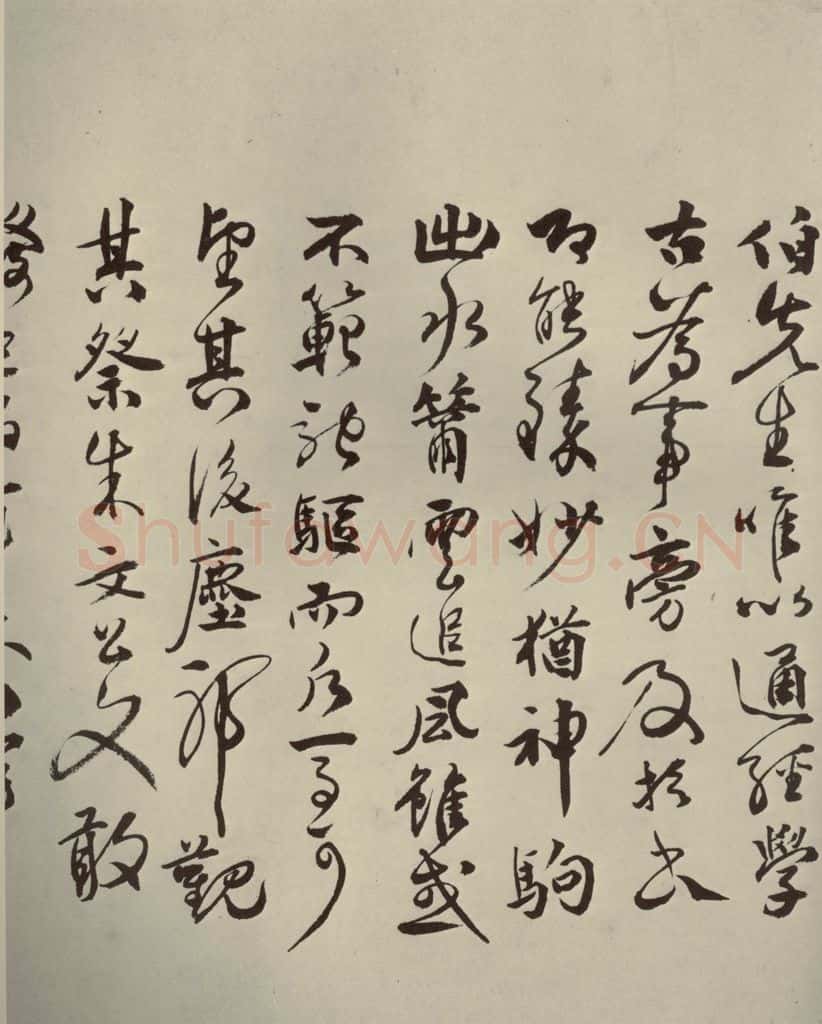 伯先生唯以通經學
古為事旁及於書
即能臻妙猶神駒
出水籋雲追風雖或
不範馳驅而可
望其後塵耶觀
其祭朱文公文敢
Shufawang.CN